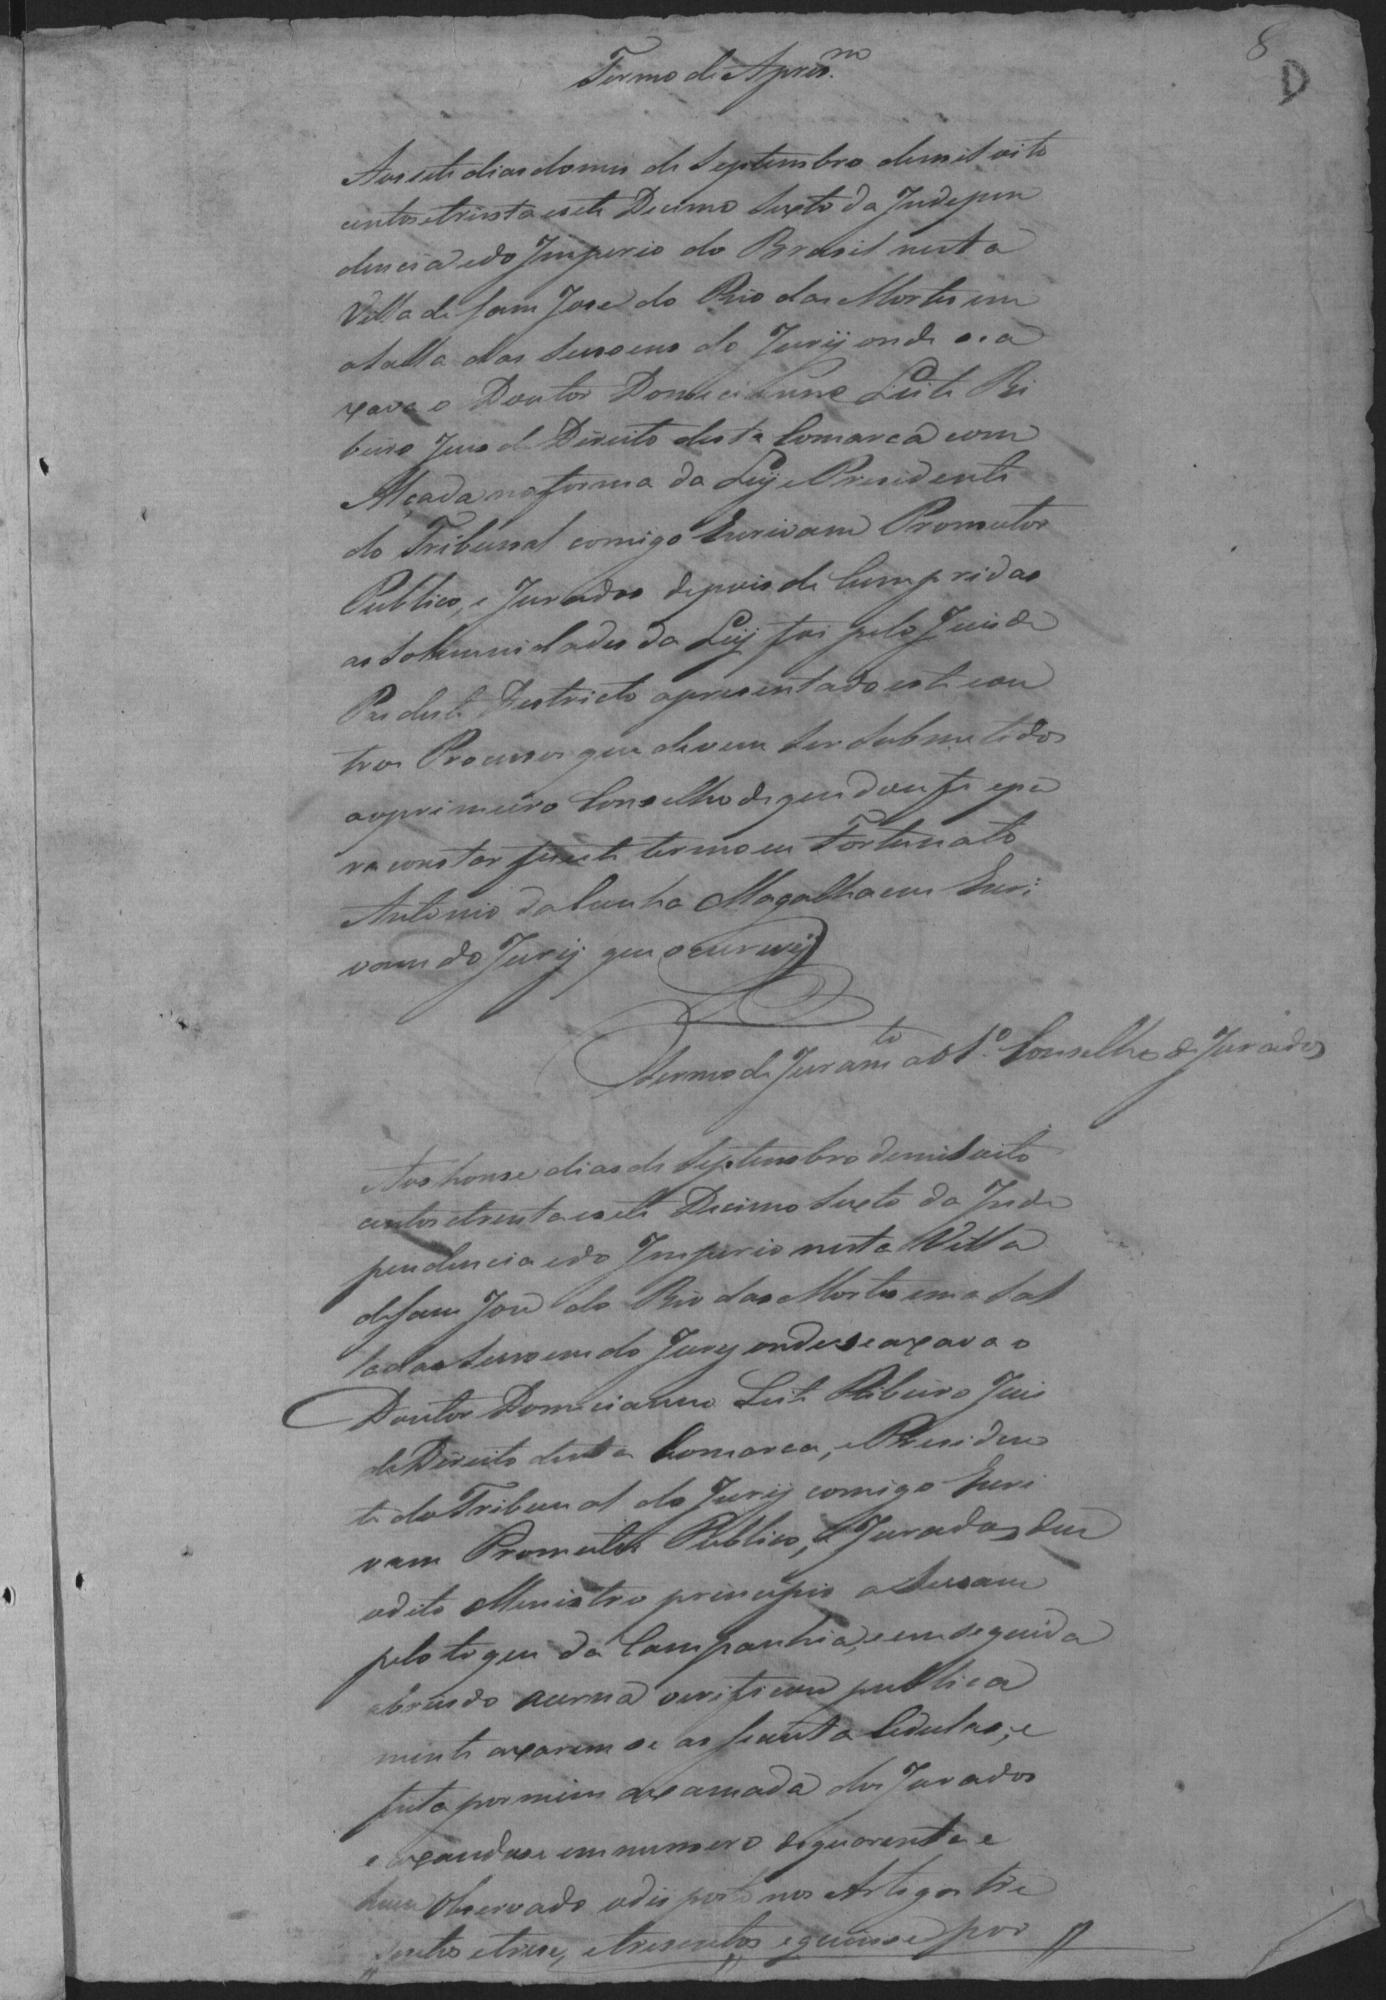 8
D
Termo de Apres.mo
Aos sete dias do mes de Septembro de mil oito
centos e trinta e sete Decimo Sexto da Indepen
dencia e do Imperio do Brasil nesta
Villa de Sam José do Rio das Mortes em
a Salla das Sessoens do Jurÿ onde se a
xava o Doutor Domiciano Leite Ri
beiro Juis de Direito desta Comarca com
Alçada na forma da Leÿ e Presidente
do Tribunal comigo Escrivam Promutor
Publico, e Jurados depois de Cumpridas
as Solemnidades da Leÿ foi pelo Juis de
Pas deste Destricto apresentado este e ou
tros Processos que devem ser submetidos
ao primeiro Conselho de que dou fé e pa
ra constar fis este termo eu Fortunato
Antonio da Cunha Magalhaens Escri
vam do Jurÿ que o escrevÿ
Termo de Juramto ao 1.º Conselho de Jurados
Aos honse dias de Septembro de mil oito
centos e trenta e sete Decimo Sexto da Inde
pendencia e do Imperio nesta Villa
de Sam José do Rio das Mortes em a Sal
la das Sessoens do Jury onde se axava o
Doutor Domicianno Leite Ribeiro Juis
de Direito desta Comarca, e Presiden
te do Tribunal do Jurÿ comigo Escri
vam Promutor Publico, e Jurados deu
o dito Ministro principio a Sessam
pelo toque da Campanhia, e em seguida
abrindo a urna verificou publica
mente axarem se as secenta Cedulas, e
feita por mim a xamada dos Jurados
e axandose em numero de quarenta e
hum Observado o disposto nos Artigos tre
sentos e trese, e tresentos e quinse por